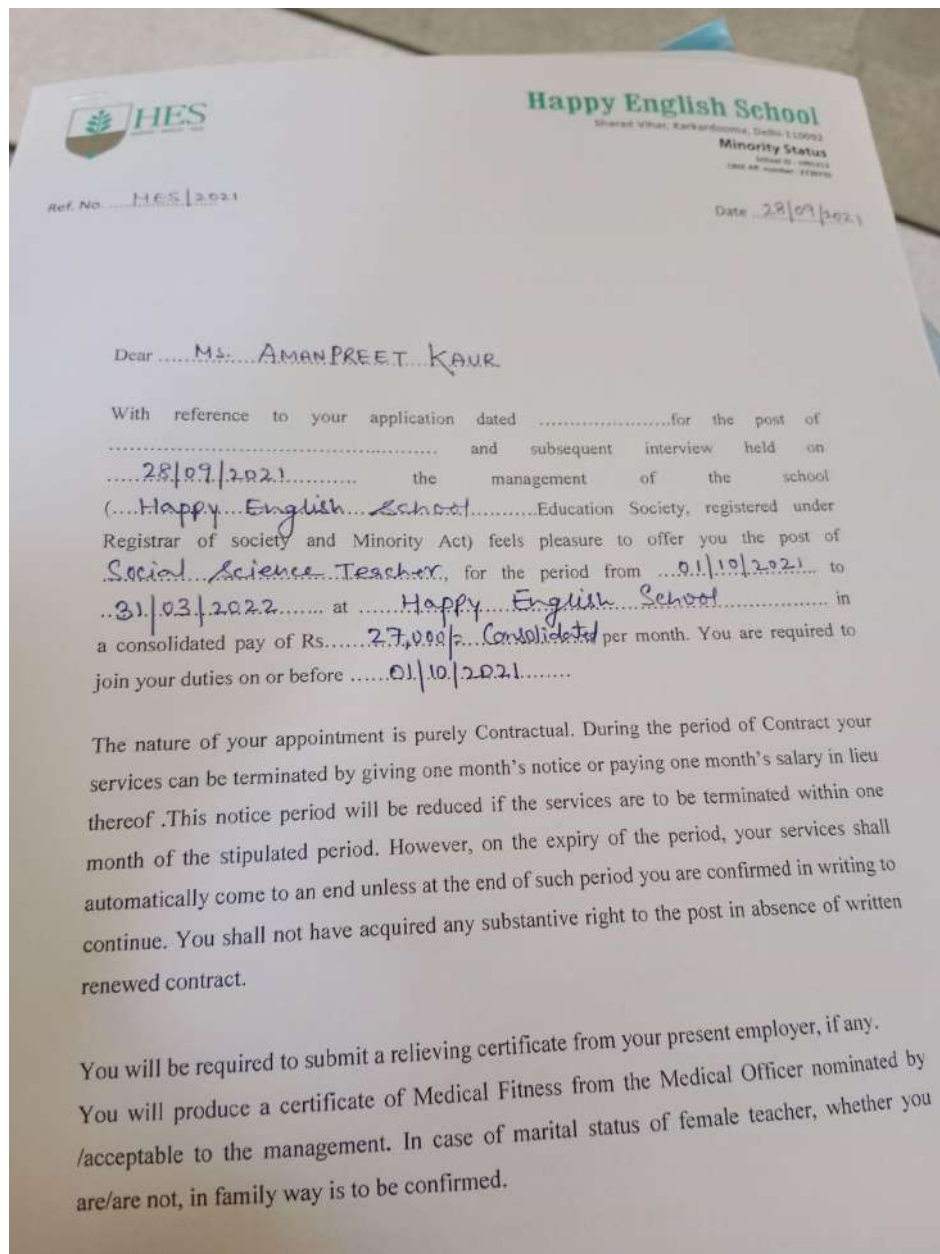 HES
Happy English School
Sharad Vihar, Karkardooma, Delhi-110092
Minority Status
Ref. No. HES/2021
Date 28/09/2021
Dear ...... Ms. AMANPREET KAUR
With reference to your application dated .....................for the post of
.................................................... and subsequent interview held on
.....28/09/2021........... the management of the school
(....Happy English School...........Education Society, registered under
Registrar of society and Minority Act) feels pleasure to offer you the post of
Social Science Teacher, for the period from ...01/10/2021... to
..31/03/2022....... at ......Happy English School.................. in
a consolidated pay of Rs......27,000/- Consolidated per month. You are required to
join your duties on or before ......01/10/2021........
The nature of your appointment is purely Contractual. During the period of Contract your
services can be terminated by giving one month's notice or paying one month's salary in lieu
thereof .This notice period will be reduced if the services are to be terminated within one
month of the stipulated period. However, on the expiry of the period, your services shall
automatically come to an end unless at the end of such period you are confirmed in writing to
continue. You shall not have acquired any substantive right to the post in absence of written
renewed contract.
You will be required to submit a relieving certificate from your present employer, if any.
You will produce a certificate of Medical Fitness from the Medical Officer nominated by
/acceptable to the management. In case of marital status of female teacher, whether you
are/are not, in family way is to be confirmed.